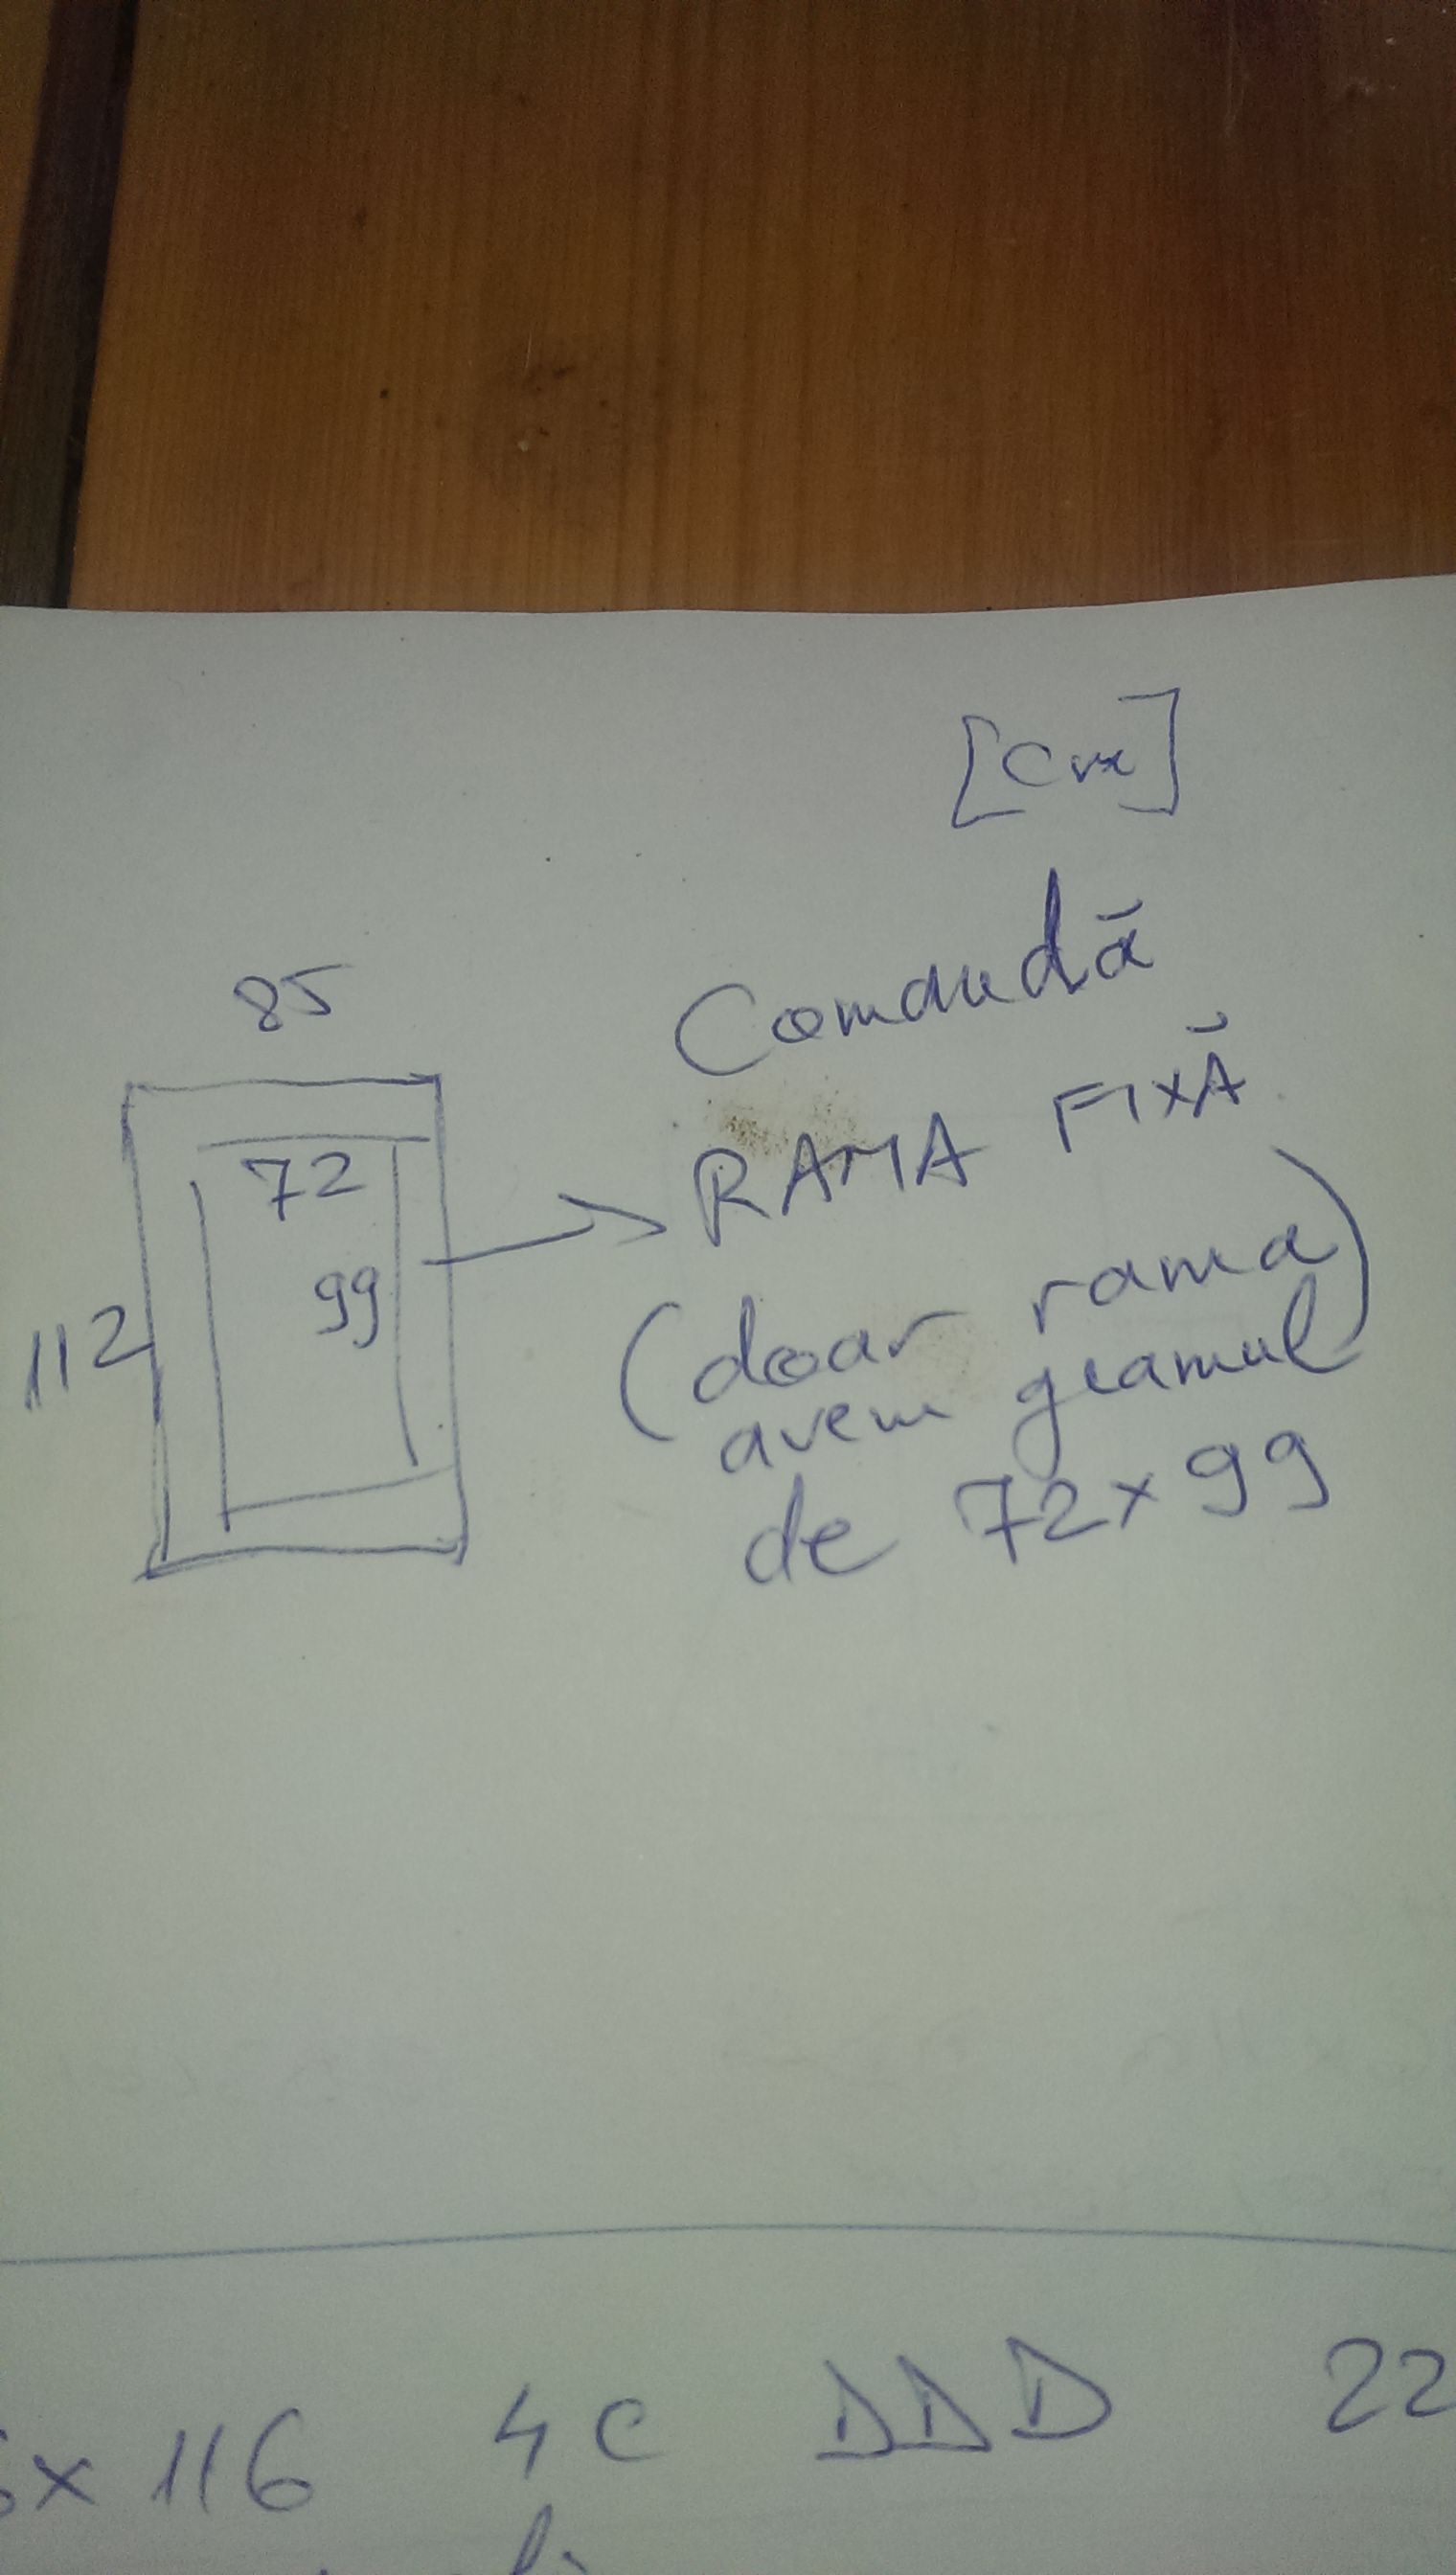 [cm]
85
Comandă
72
RAMA FIXĂ
99
112
(doar rama)
avem geamul
de 72x99
x 116 4C DDD 22